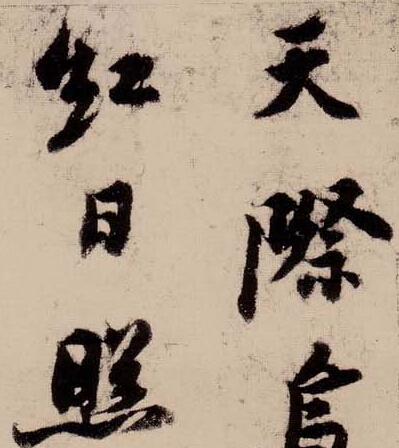 天際烏
紅日照